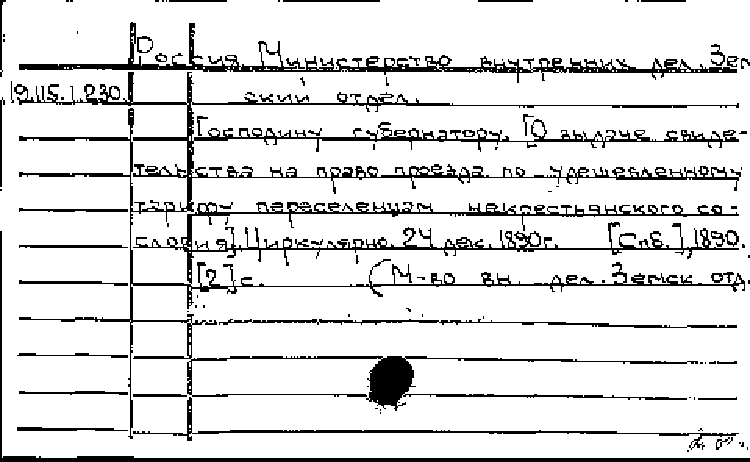 Россия. Министерство внутренних дел. Зем
19.115.1.230. ский отдел.
Господину губернатору. [О выдаче свиде-
тельства на право проезда по удешевленному
тарифу переселенцам некрестьянского со-
словия]. Циркулярно. 24 дек. 1890г. [Спб.], 1890.
[2] с. (М-во вн. дел. Земск. отд.